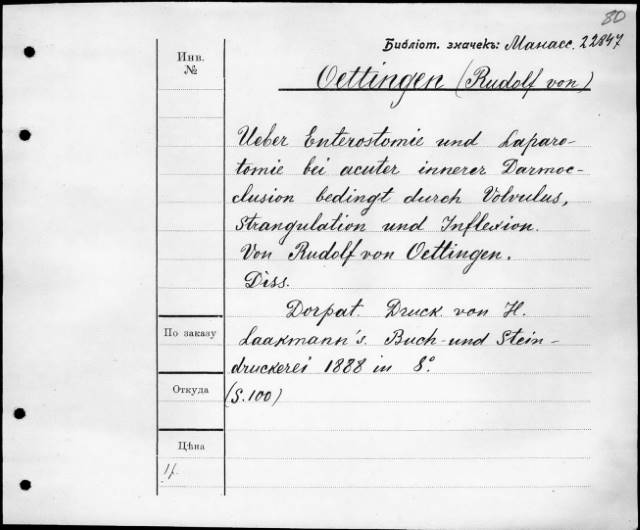 80
Библіот. значекъ: Манасс. 22847
Инв.
№
Oettingen (Rudolf von)
Ueber Enterostomie und Laparo-
tomie bei acuter innerer Darmoc-
clusion bedingt durch Volvulus,
Strangulation und Inflexion.
Von Rudolf von Oettingen.
Diss.
Dorpat. Druck von H.
Laakmann's. Buch- und Stein-
druckerei 1888 in 8°.
(S. 100)
По заказу
Откуда
Цѣна